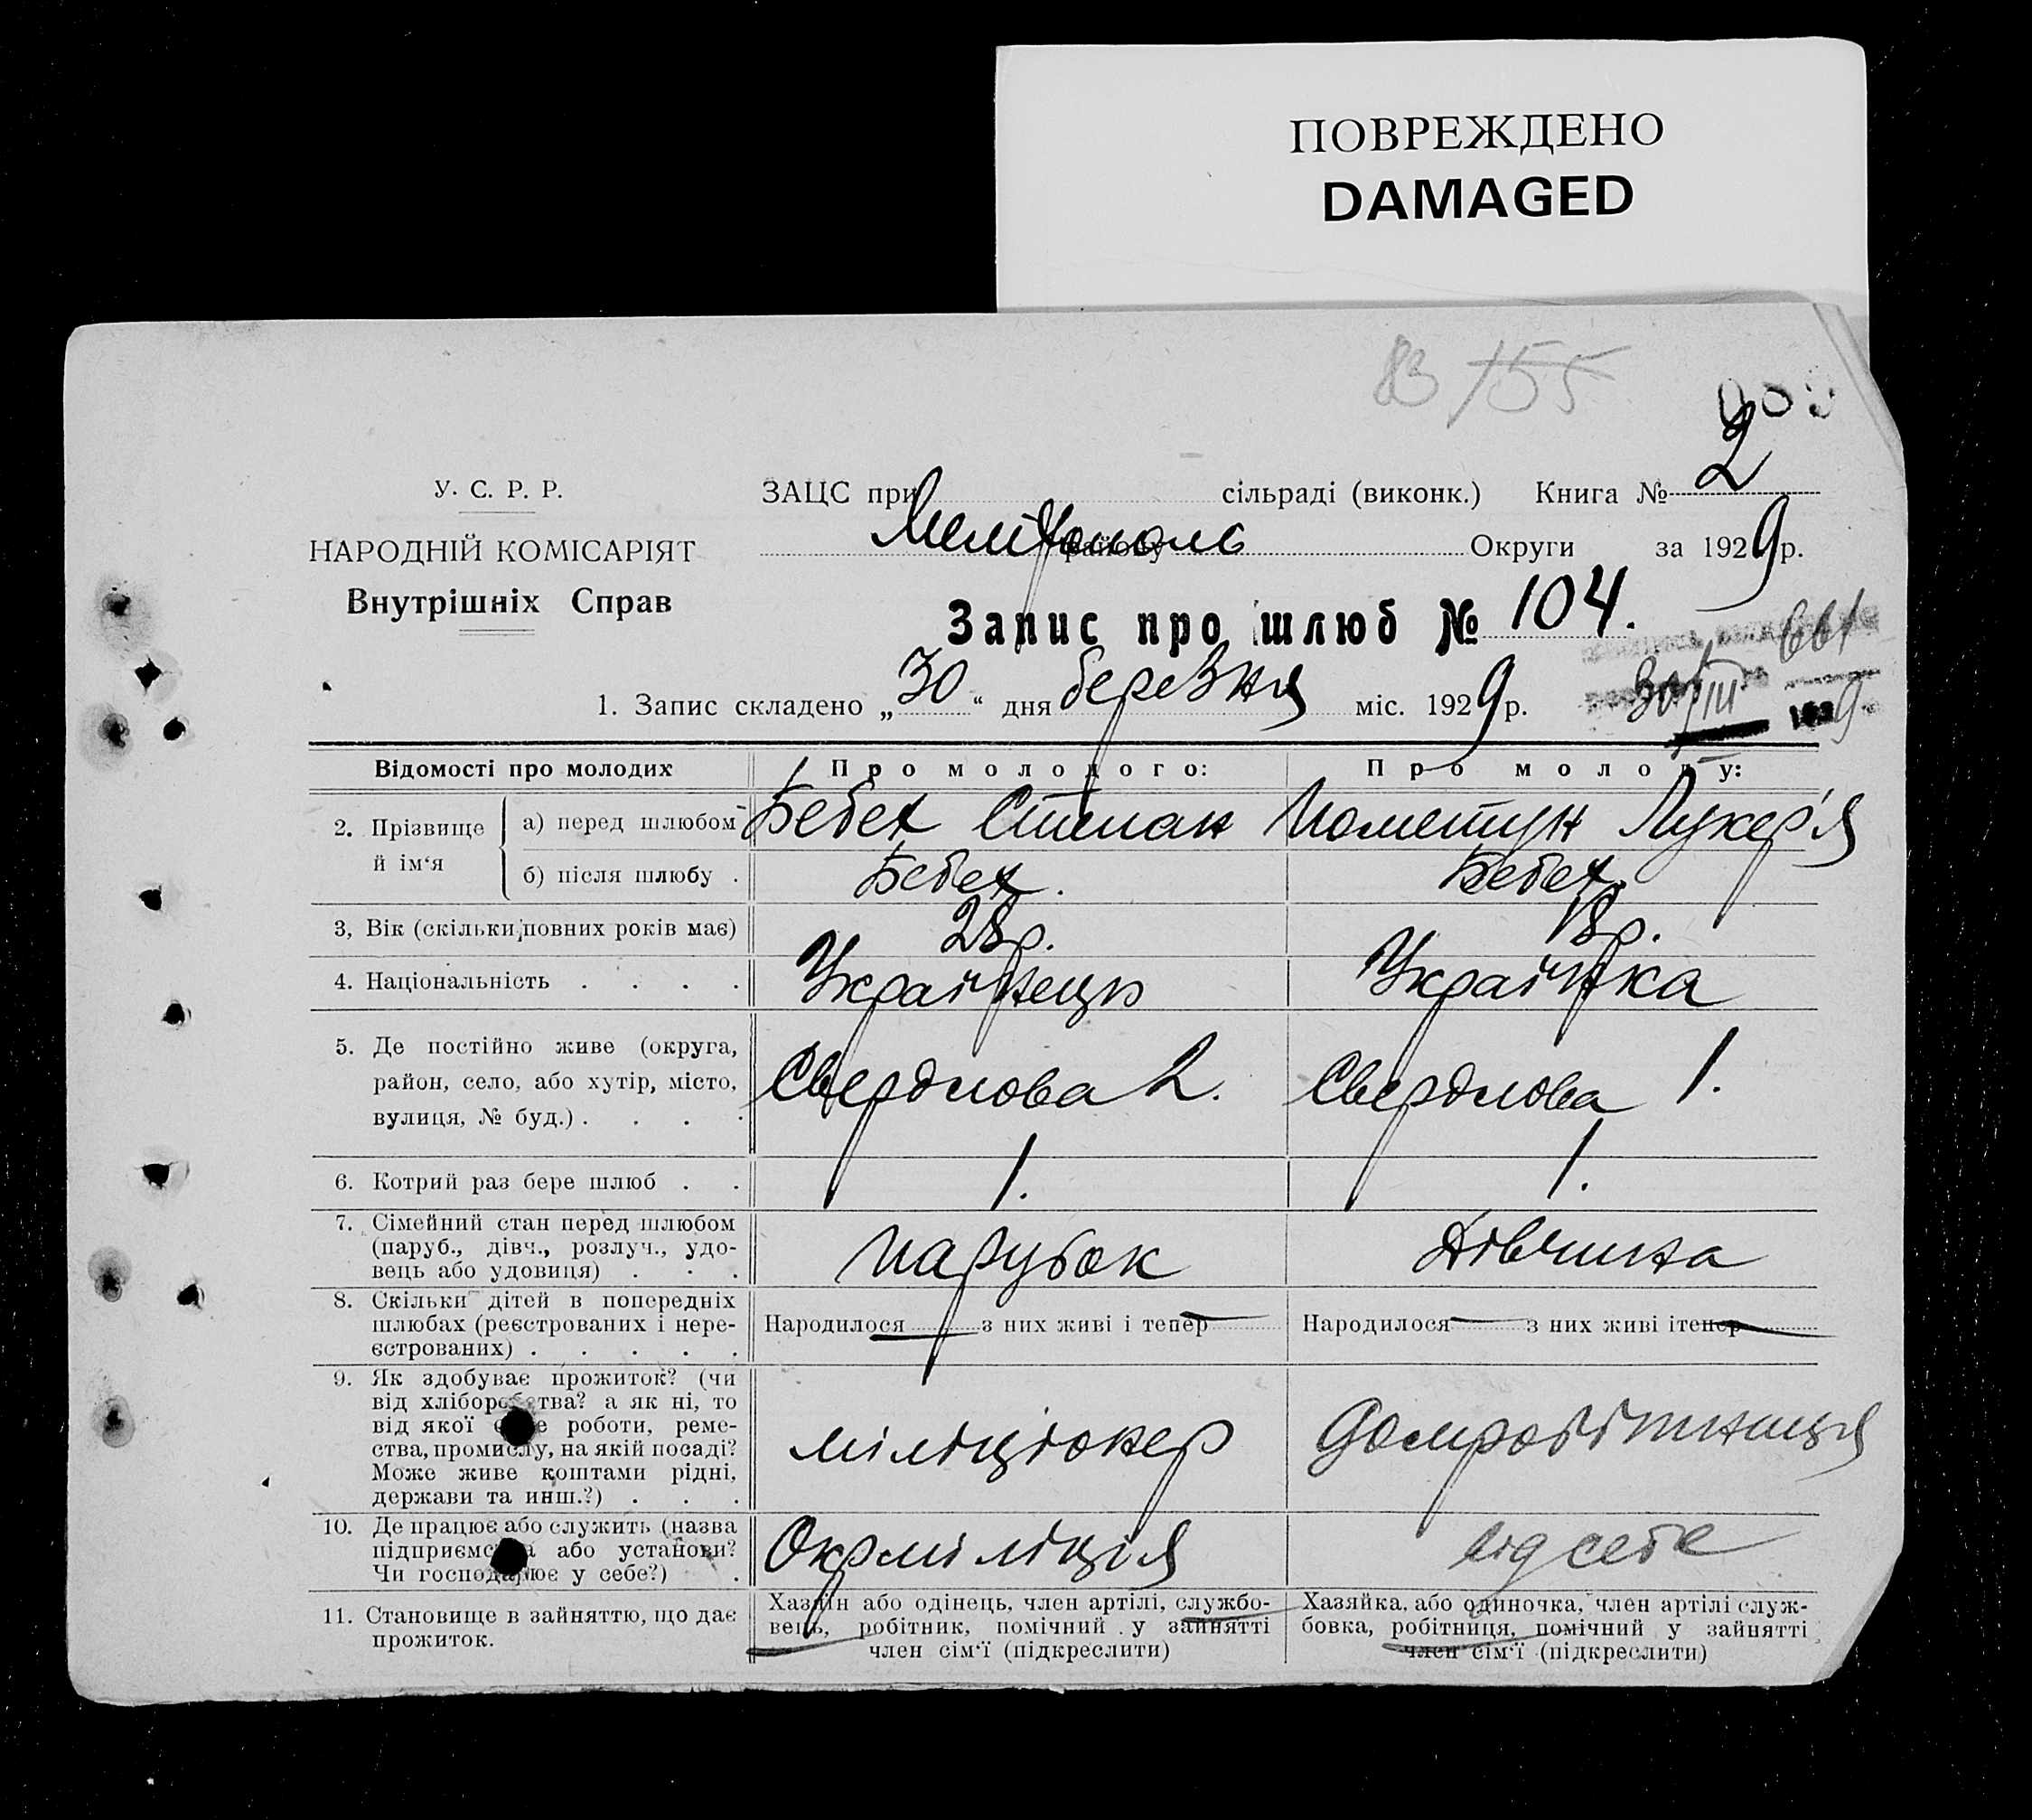 ПОВРЕЖДЕНО
DAMAGED
83 155
У. С. Р. Р.
НАРОДНІЙ КОМІСАРІЯТ
Внутрішніх Справ
ЗАЦС при сільраді (виконк.) Книга № 2
Мелітополь району Округи за 1929 р.
Запис про шлюб № 104.
661
30/III 1929
1. Запис складено „30“ дня березня міс. 1929 р.
Відомості про молодих
Про молодого:
Про молоду:
2. Прізвище й ім‘я
а) перед шлюбом
Бебех Степан
Пометун Лукер'я
б) після шлюбу .
Бебех.
Бебех.
3, Вік (скільки повних років має)
28 р.
18 р.
4. Національність . . . .
Українець
Українка
5. Де постійно живе (округа,
район, село, або хутір, місто,
вулиця, № буд.) . . . .
Свердлова 2.
Свердлова 1.
6. Котрий раз бере шлюб . .
1.
1.
7. Сімейний стан перед шлюбом
(паруб., дівч., розлуч., удо-
вець або удовиця) . . .
парубок
Дівчина
8. Скільки дітей в попередніх
шлюбах (реєстрованих і нере-
єстрованих) . . . . .
Народилося — з них живі і тепер —
Народилося — з них живі і тепер —
9. Як здобуває прожиток? (чи
від хліборобства? а як ні, то
від якої роботи, реме-
ства, промислу, на якій посаді?
Може живе коштами рідні,
держави та инш.?) . . .
міліціонер
Домробітниця
10. Де працює або служить (назва
підприємства або установи?
Чи господарює у себе?) .
Окрміліція
від себе
11. Становище в зайняттю, що дає
прожиток.
Хазяїн або одінець, член артілі, службо-
вець, робітник, помічний у зайнятті
член сім‘ї (підкреслити)
Хазяйка, або одиночка, член артілі служ-
бовка, робітниця, помічний у зайнятті
член сім‘ї (підкреслити)